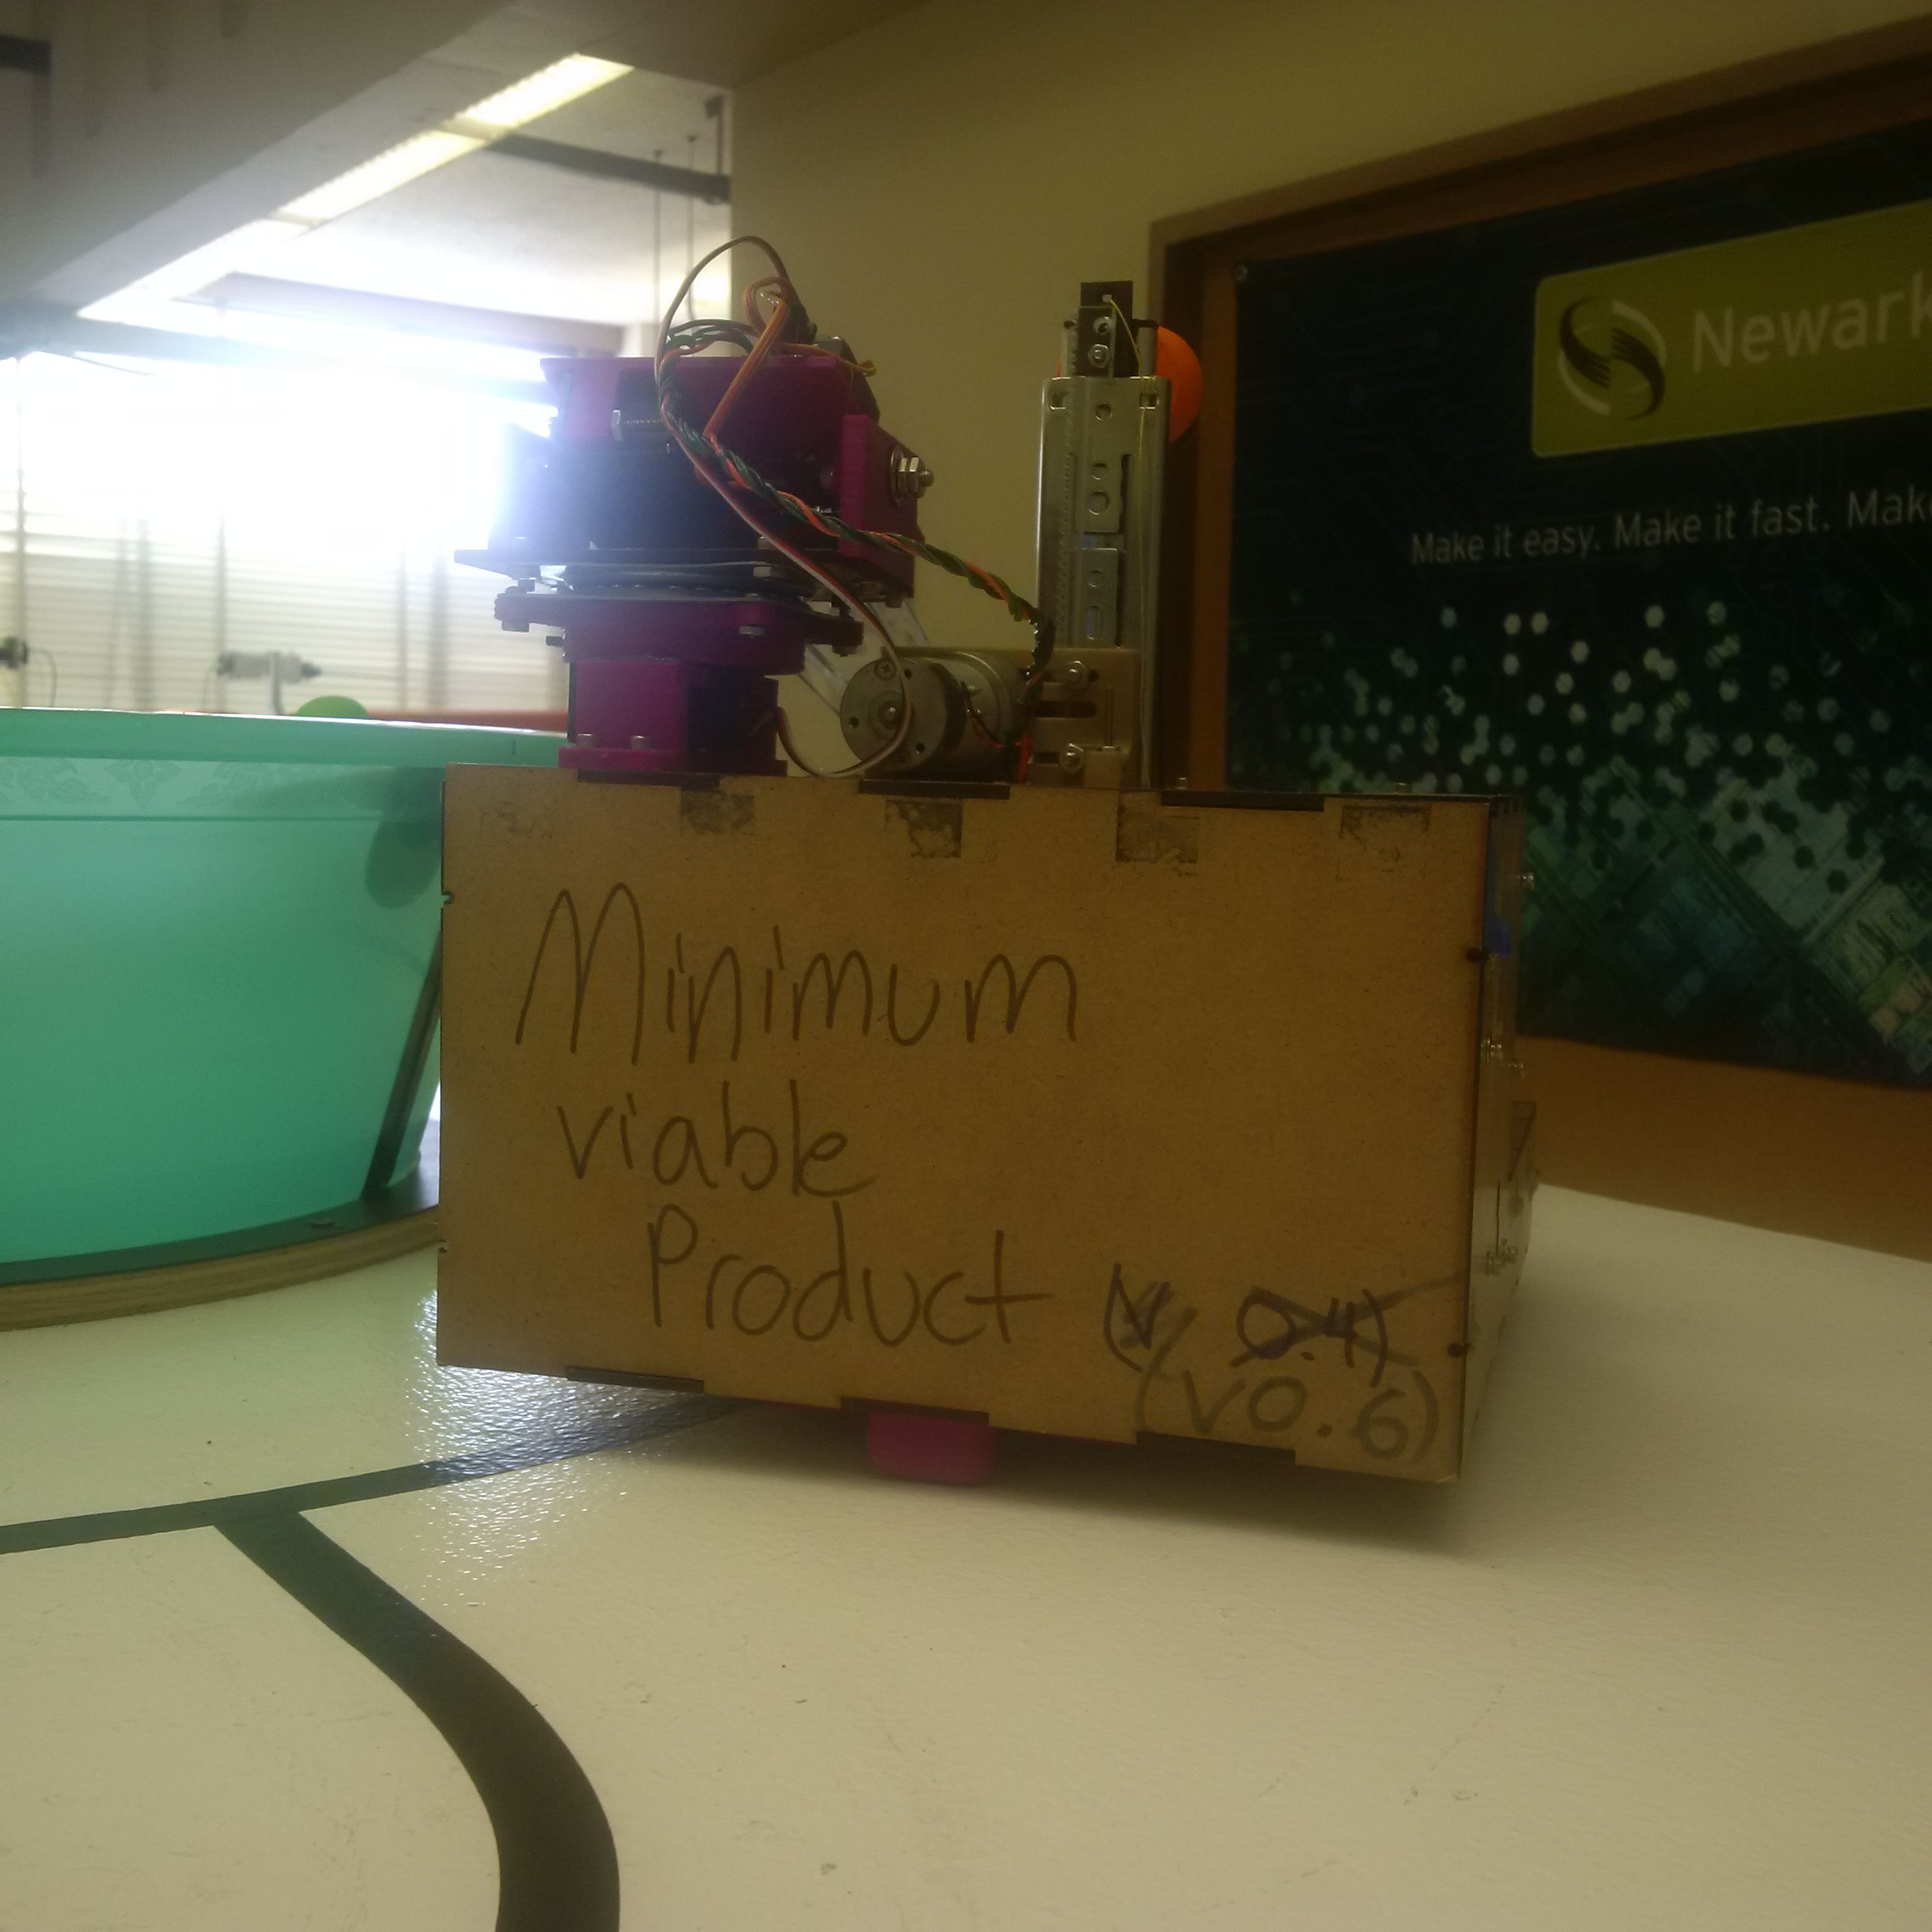 Newark
Make it easy. Make it fast. Mak
Minimum
viable
Product (V 0.4)
(V0.6)